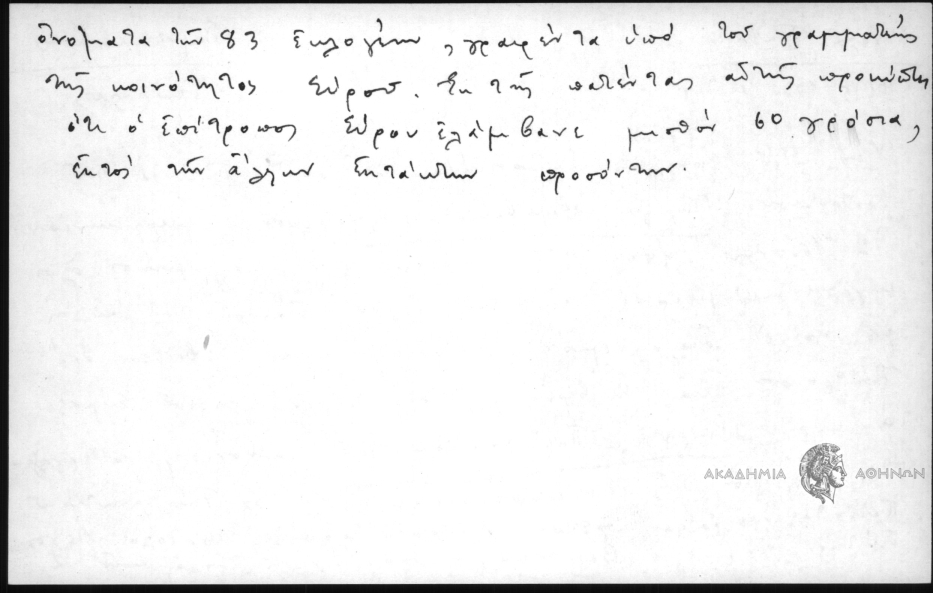 ὀνόματα τῶν 83 ἐκλογέων, γραφέντα ὑπό τοῦ γραμματικοῦ
τῆς κοινότητος Σύρου. Ἐκ τῆς πατέντας αὐτῆς προκύπτει
ὅτι ὁ ἐπίτροπος Σύρου ἐλάμβανε μισθόν 60 γρόσια,
ἐκτός τῶν ἄλλων ἐκτάκτων προσόντων.
ΑΚΑΔΗΜΙΑ ΑΘΗΝΩΝ